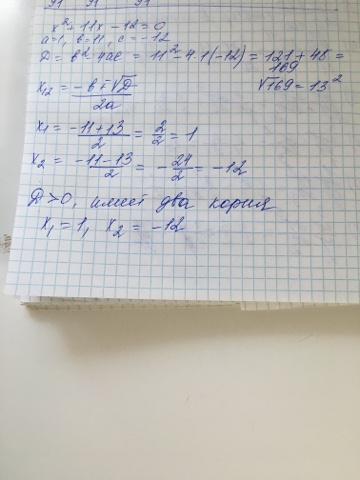 x² + 11x - 12 = 0
a=1, b=11, c=-12
D = b² - 4ac = 11² - 4·1·(-12) = 121 + 48 =
169
√169 = 13²
x₁₂ = (-b ± √D) / 2a
x₁ = (-11+13) / 2 = 2/2 = 1
x₂ = (-11-13) / 2 = -24/2 = -12
D > 0, имеет два корня
x₁ = 1, x₂ = -12